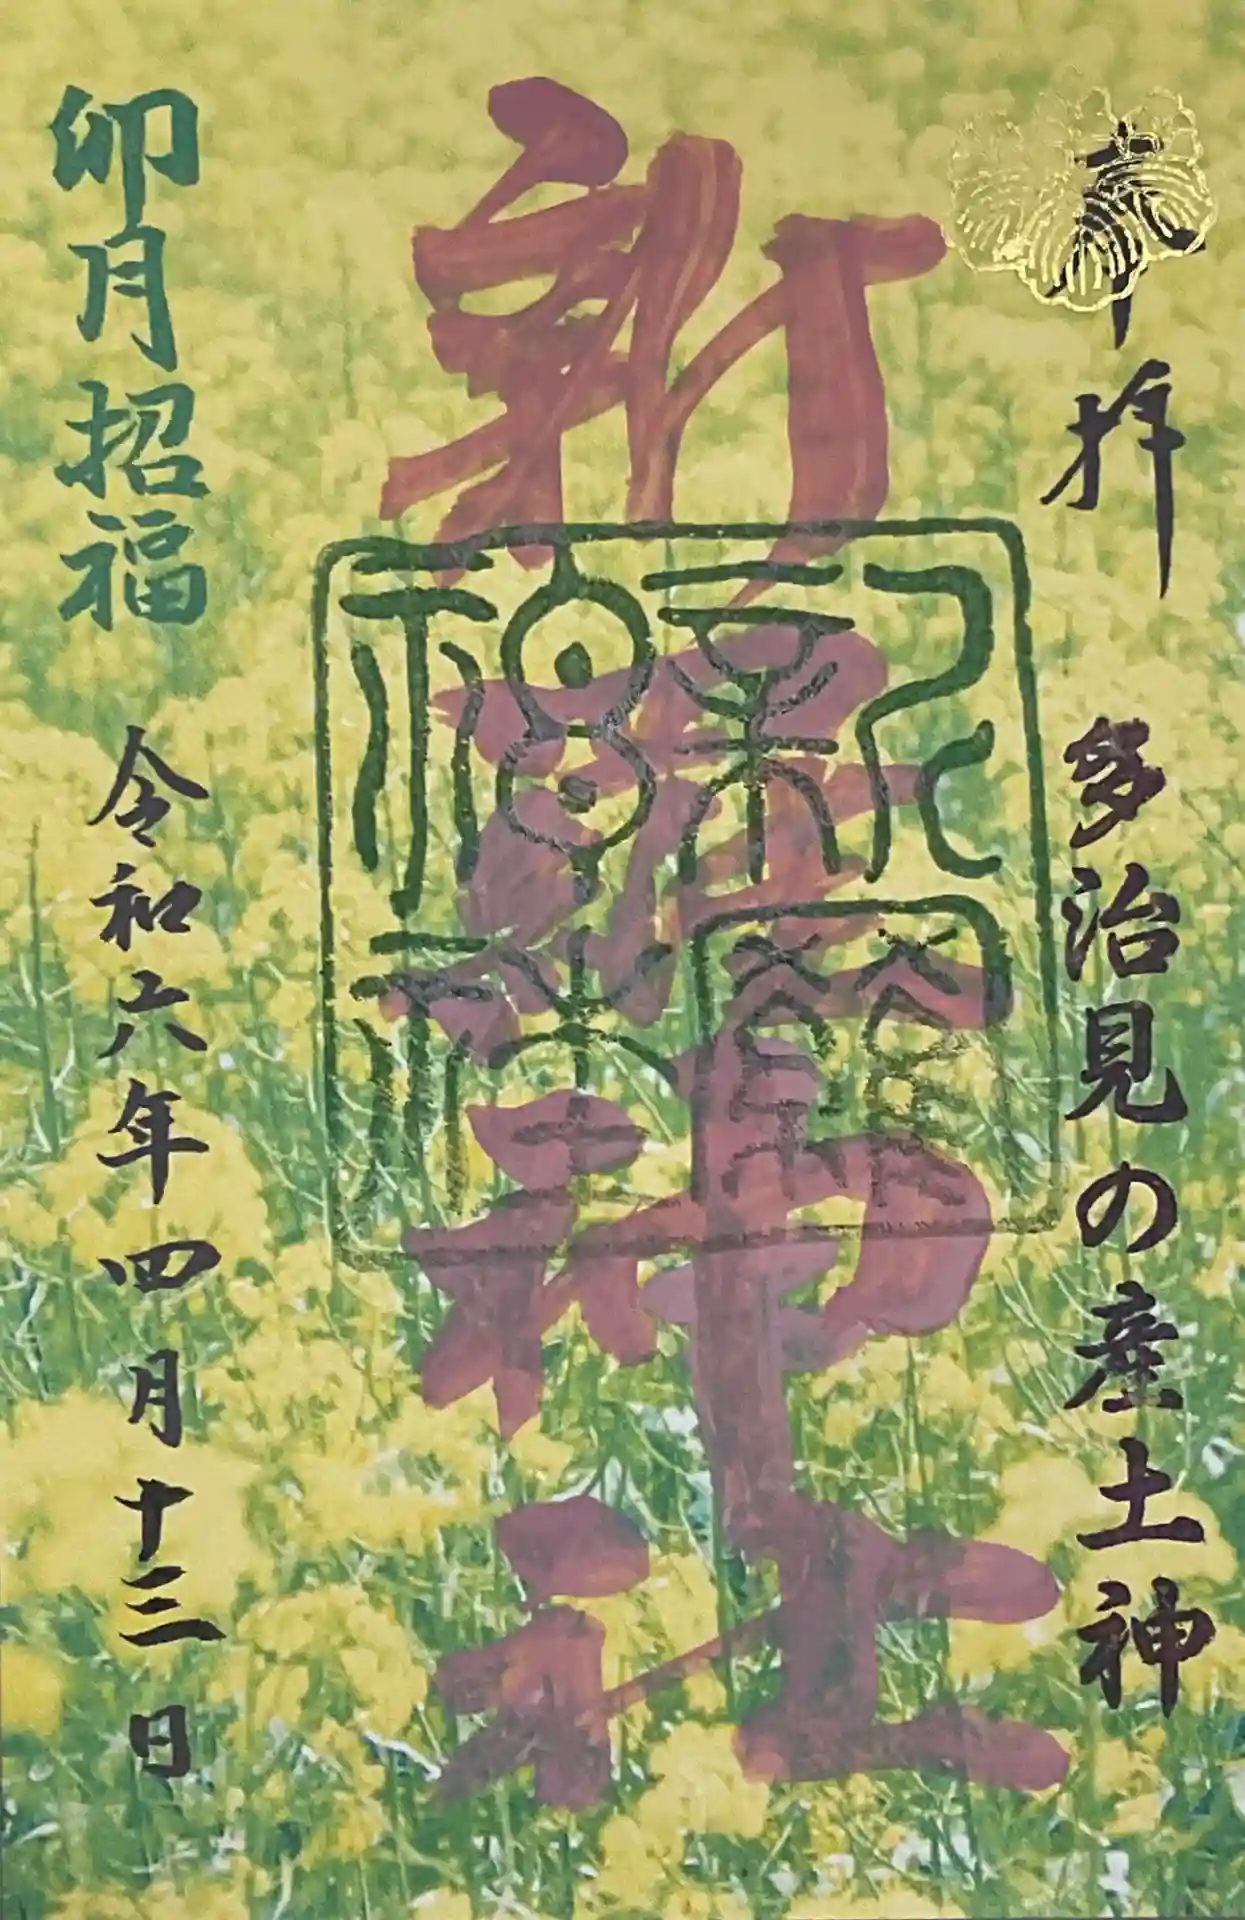 奉拝
多治見の産土神
新羅神社
卯月招福
令和六年四月十三日